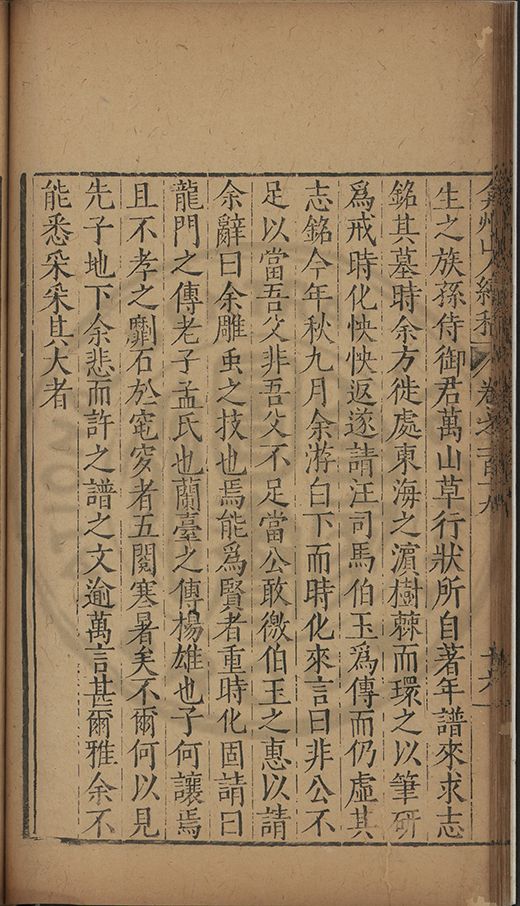 弇州山人續稿 卷之一百十九 十六
生之族孫侍御君萬山草行狀所自著年譜來求志
銘其墓時余方徙處東海之濵樹棘而環之以筆研
爲戒時化怏怏返遂請汪司馬伯玉爲傳而仍虛其
志銘今年秋九月余游白下而時化來言曰非公不
足以當吾父非吾父不足當公敢徼伯玉之惠以請
余辭曰余雕虫之技也焉能爲賢者重時化固請曰
龍門之傳老子孟氏也蘭臺之傳楊雄也子何讓焉
且不孝之劘石於窀穸者五閱寒暑矣不爾何以見
先子地下余悲而許之譜之文逾萬言甚爾雅余不
能悉采采其大者